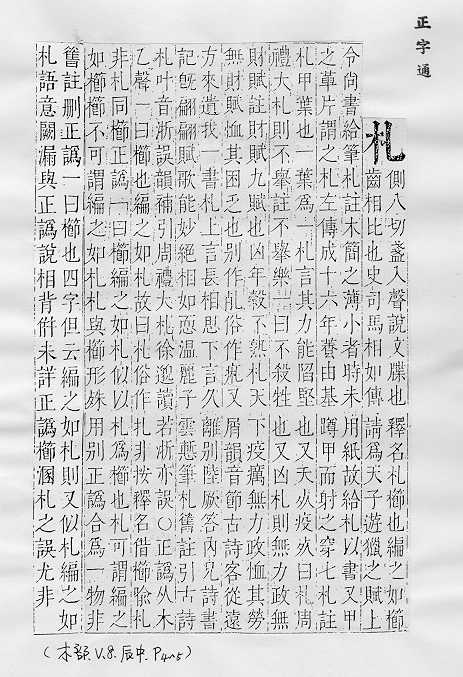 正字通
札
側八切盞入聲說文牒也釋名札櫛也編之如櫛
齒相比也史司馬相如傳請爲天子遊獵之賦上
令尚書給筆札註木簡之薄小者時未用紙故給札以書又甲
之革片謂之札左傳成十六年養由基蹲甲而射之穿七札註
札甲葉也一葉爲一札言其力能陷堅也又夭死疫死曰札周
禮大札則不舉註不舉樂一曰不殺牲也又凶札則無力政無
財賦註財賦九賦也凶年穀不熟札天下疫癘無力政恤其勞
無財賦恤其困乏也別作俗作又屑韻音節古詩客從遠
方來遺我一書札上言長相思下言久離別陸厥答內兄詩書
記旣翩翩賦歌能妙絶相如恧温麗子雲慙筆札舊註引古詩
札叶音浙誤韻補引周禮大札徐邈讀若浙亦誤○正譌从木
乙聲一曰櫛也編之如札故曰札俗作扎非按釋名借櫛喻札
非札同櫛正譌一曰櫛編之如札似以札爲櫛也札可謂編之
如櫛櫛不可謂編之如札札與櫛形殊用別正譌合爲一物非
舊註刪正譌一曰櫛也四字但云編之如札則又似札編之如
札語意闕漏與正譌說相背併未詳正譌櫛溷札之誤尤非
(木部.V.8.辰中.P4~5)